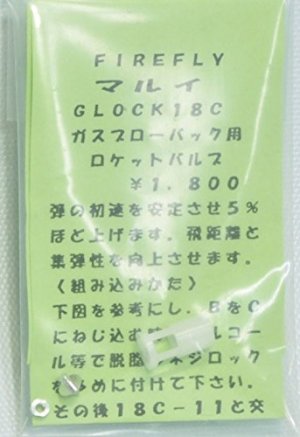 FIREFLY
マルイ
GLOCK18C
ガスブローバック用
ロケットバルブ
¥1,800
弾の初速を安定させ5%
ほど上げます。飛距離と
集弾性を向上させます。
〈組み込みかた〉
下図を参考にし、BをC
にねじ込む コー
ル等で脱脂 ネジロック
を めに付けて下さい。
その後18C-11と交